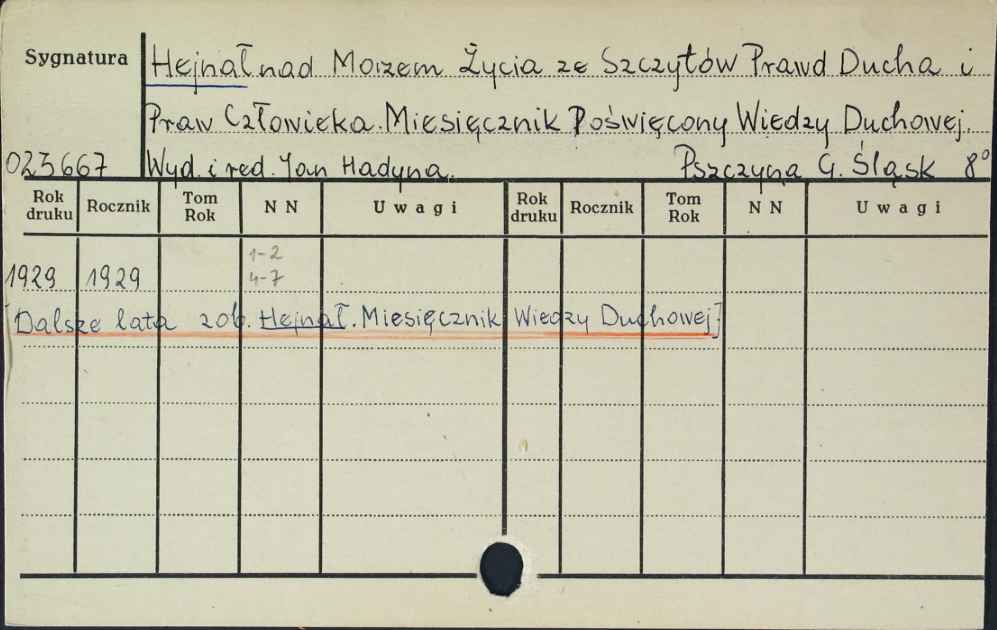 Sygnatura Hejnał nad Morzem Życia ze Szczytów Prawd Ducha i
Praw Człowieka. Miesięcznik Poświęcony Wiedzy Duchowej.
023667 Wyd. i red. Jan Hadyna. Pszczyna G. Śląsk 8°
Rok druku Rocznik Tom Rok NN Uwagi Rok druku Rocznik Tom Rok NN Uwagi
1-2
1929 1929 4-7
[Dalsze lata zob. Hejnał. Miesięcznik Wiedzy Duchowej]